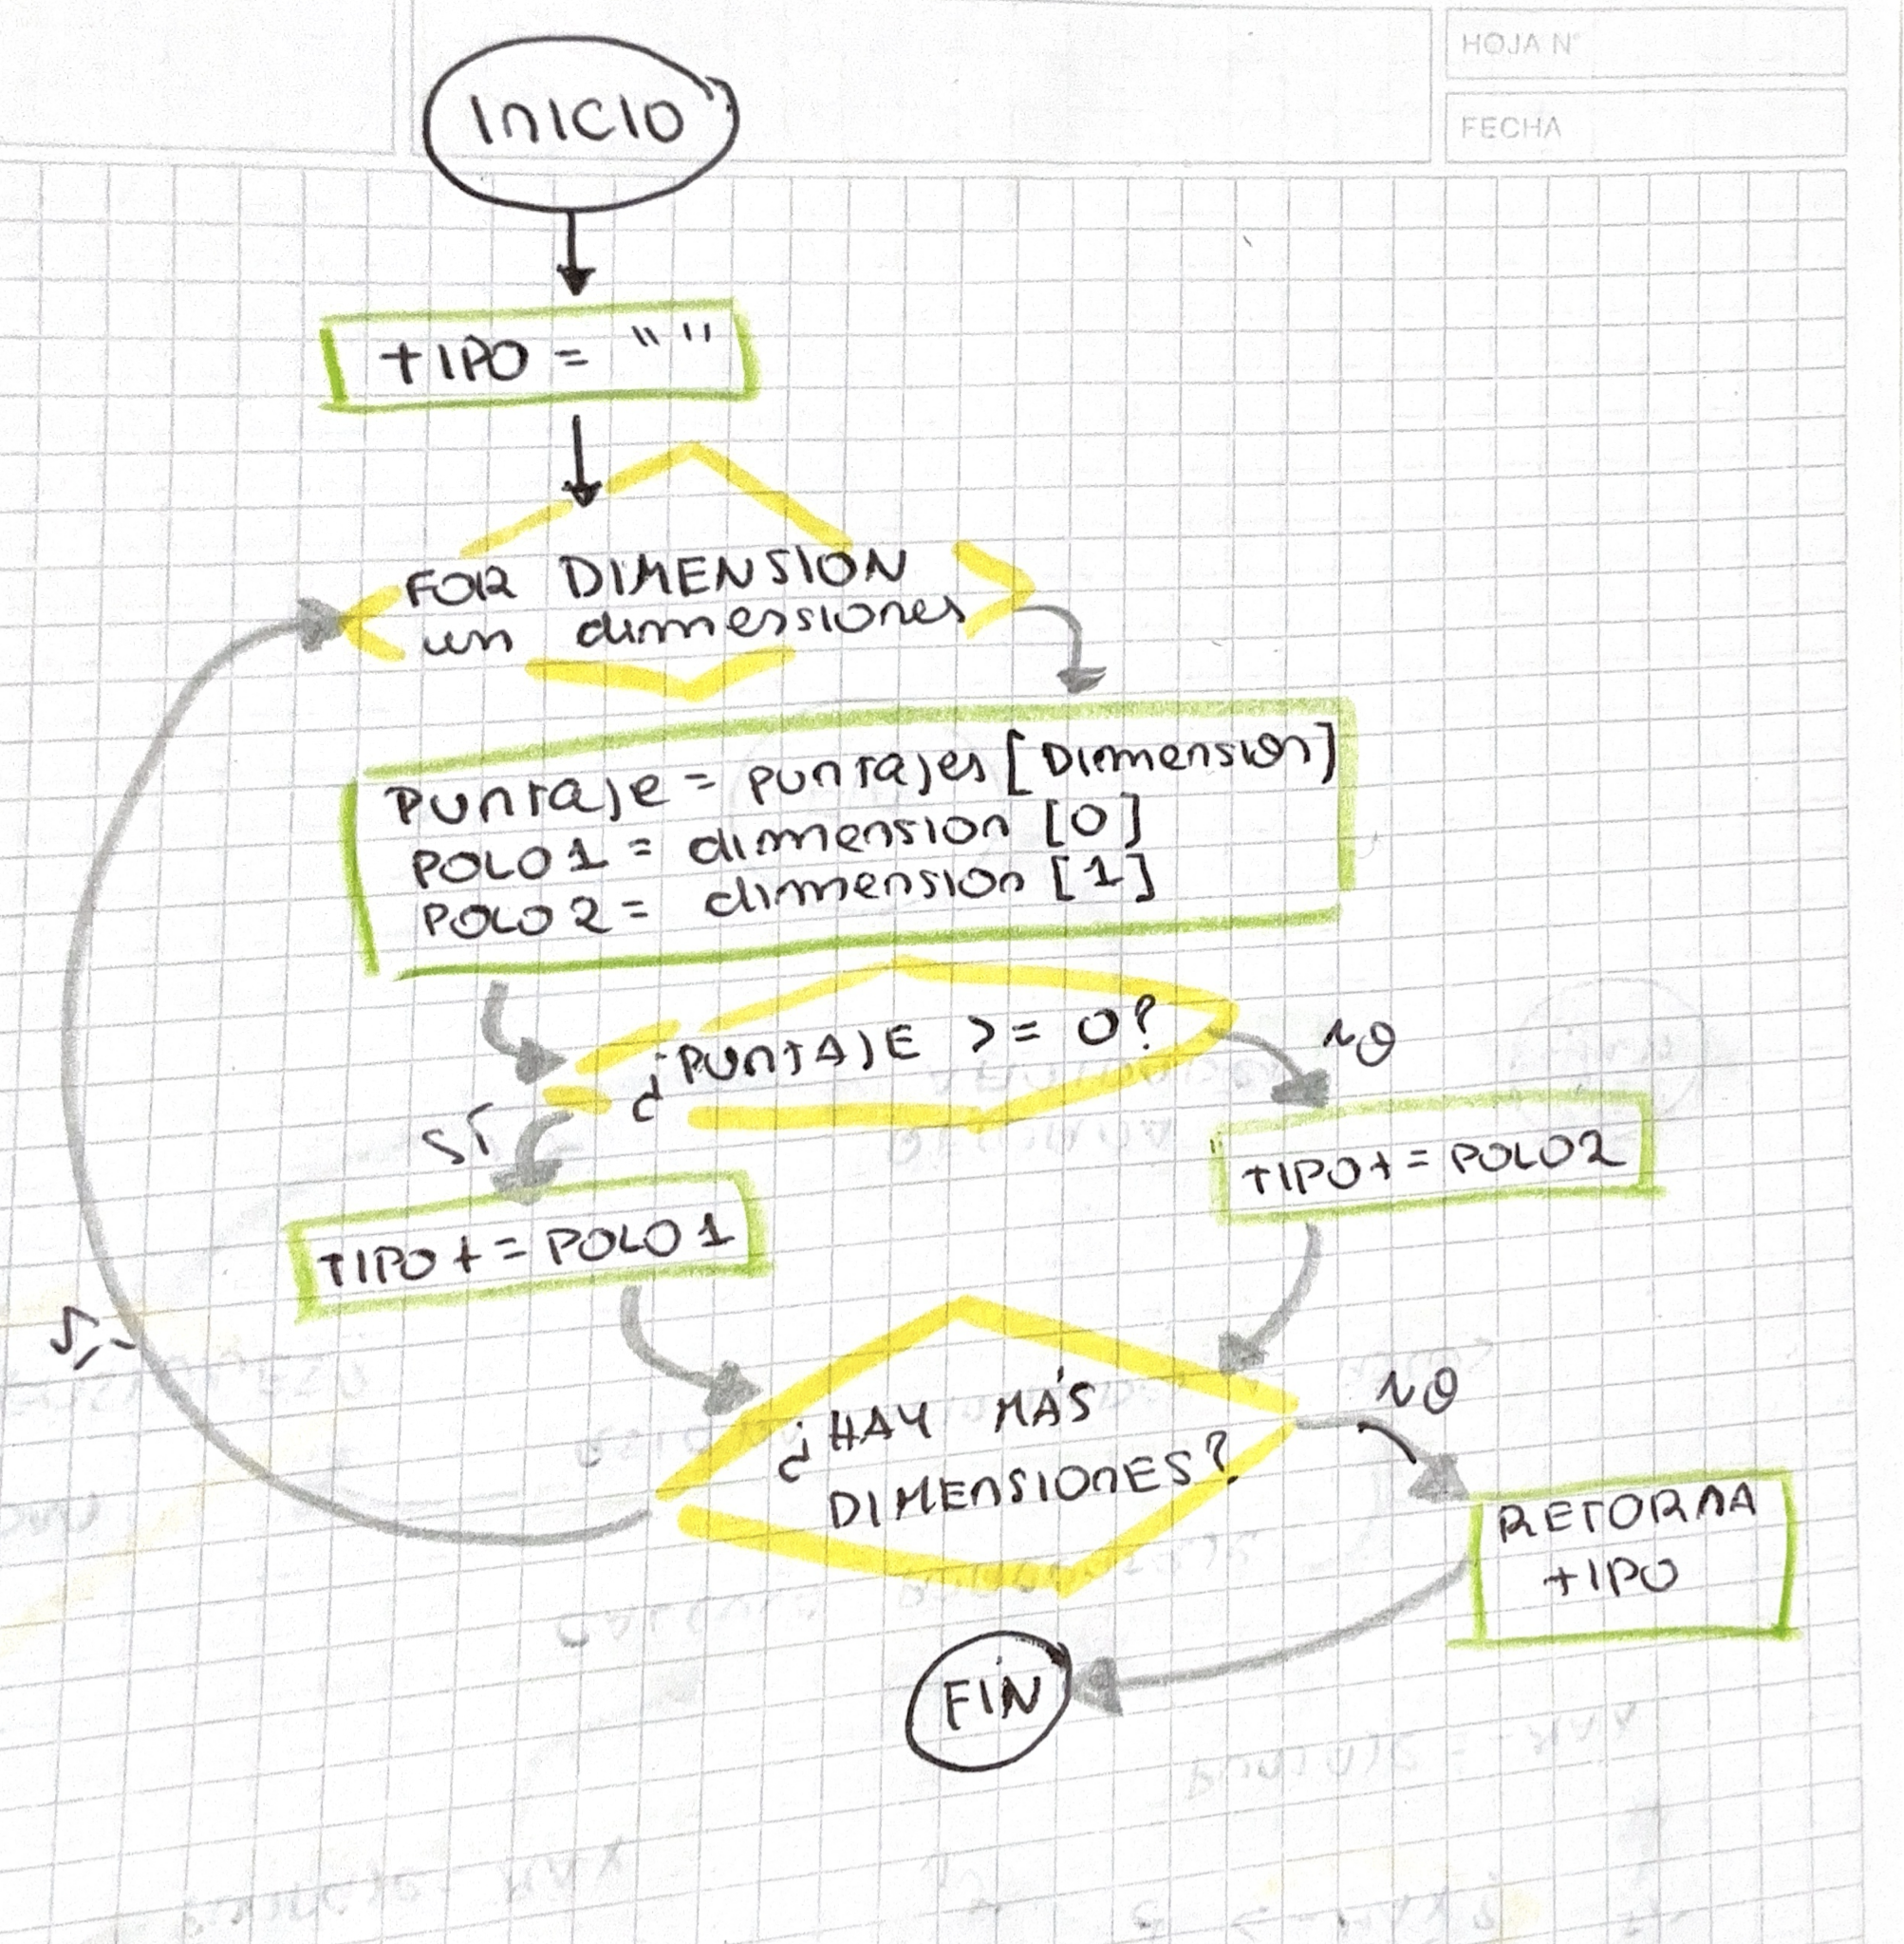 HOJA N°
FECHA
INICIO
TIPO = " "
FOR DIMENSION
en dimessiones
PUNTAJE = PUNTAJES [DIMENSION]
POLO 1 = dimension [0]
POLO 2 = dimension [1]
¿PUNTAJE >= 0?
NO
SÍ
TIPO += POLO 2
TIPO += POLO 1
SI
¿HAY MÁS
DIMENSIONES?
NO
RETORNA
TIPO
FIN